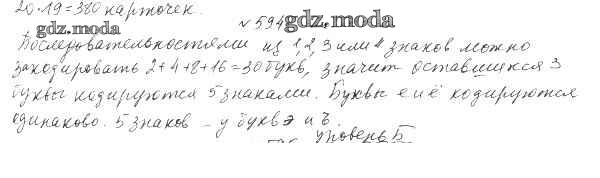 20·19=380 карточек.
gdz.moda
№594
gdz.moda
Последовательностями из 1,2,3 или 4 знаков можно
закодировать 2+4+8+16=30 букв, значит оставшиеся 3
буквы кодируются 5 знаками. Буквы е и ё кодируются
одинаково. 5 знаков – у букв э и ъ.
Уровень Б